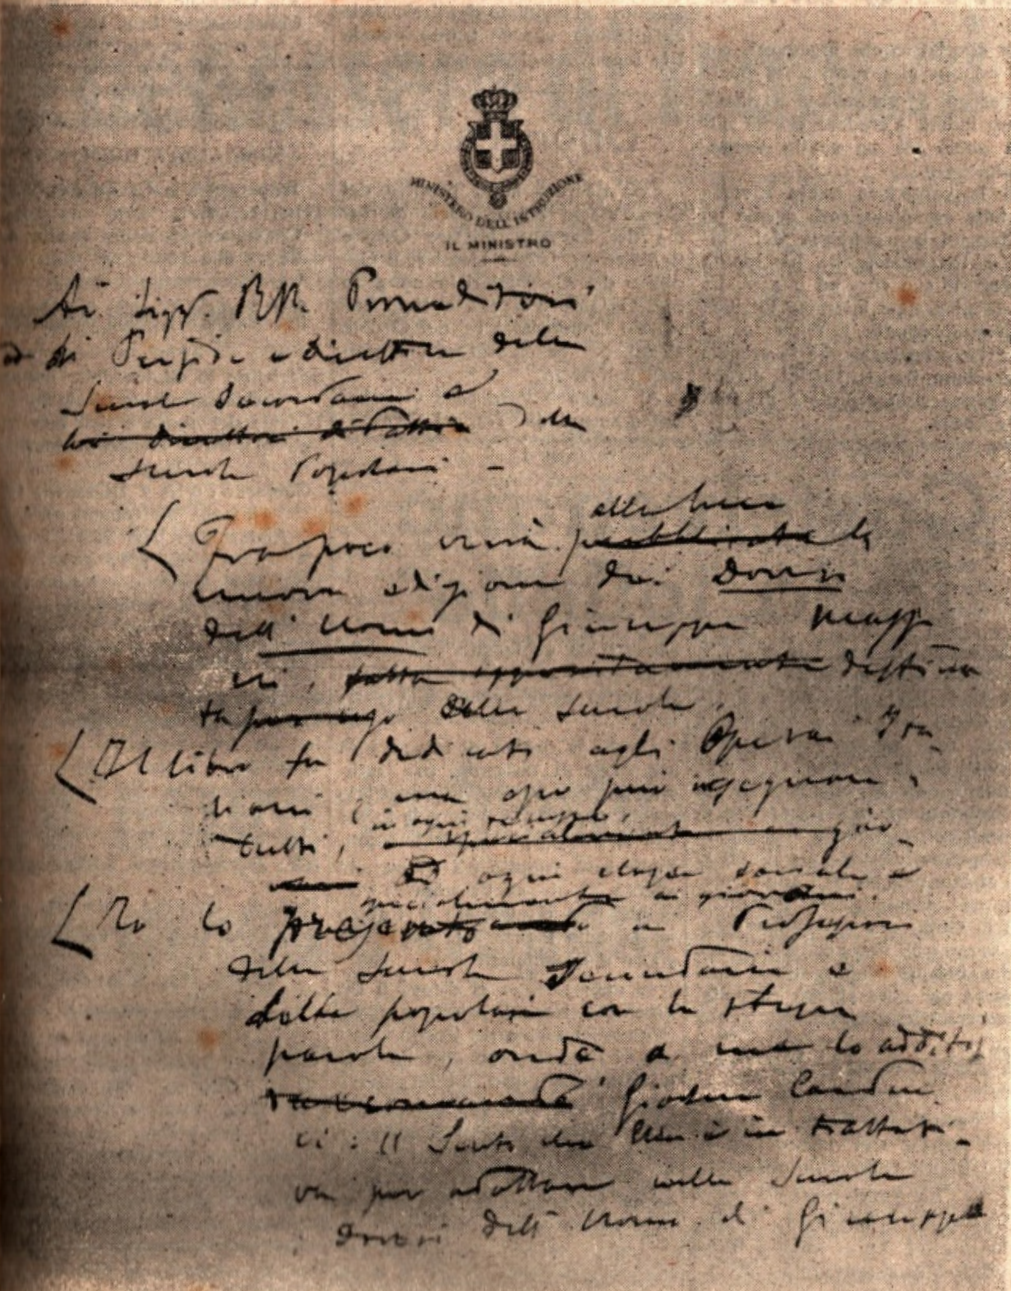 MINISTERO DELL'ISTRUZIONE
IL MINISTRO
Ai Sigg. RR. Provveditori
di Presidi e Direttori delle
Scuole Secondarie e
direttori delle
Scuole Popolari -
alla luce
Fra poco verrà pubblicata la
nuova edizione dei Doveri
dell'Uomo di Giuseppe Mazzi
ni, fatta appositamente destina
ta per uso delle Scuole.
Il libro fu dedicato agli Operai Ita
liani, ma oggi può insegnare a
tutti, in ogni tempo,
specialmente ai gio
vani di ogni classe sociale e
specialmente ai giovani.
Io lo presento ai Professori
delle Scuole Secondarie e
delle popolari con le stesse
parole, onde a me lo additò
raccomandò Giosue Carduc
ci: "Sento che Ella è in trattati-
va per adottare nelle Scuole
Doveri dell'Uomo di Giuseppe